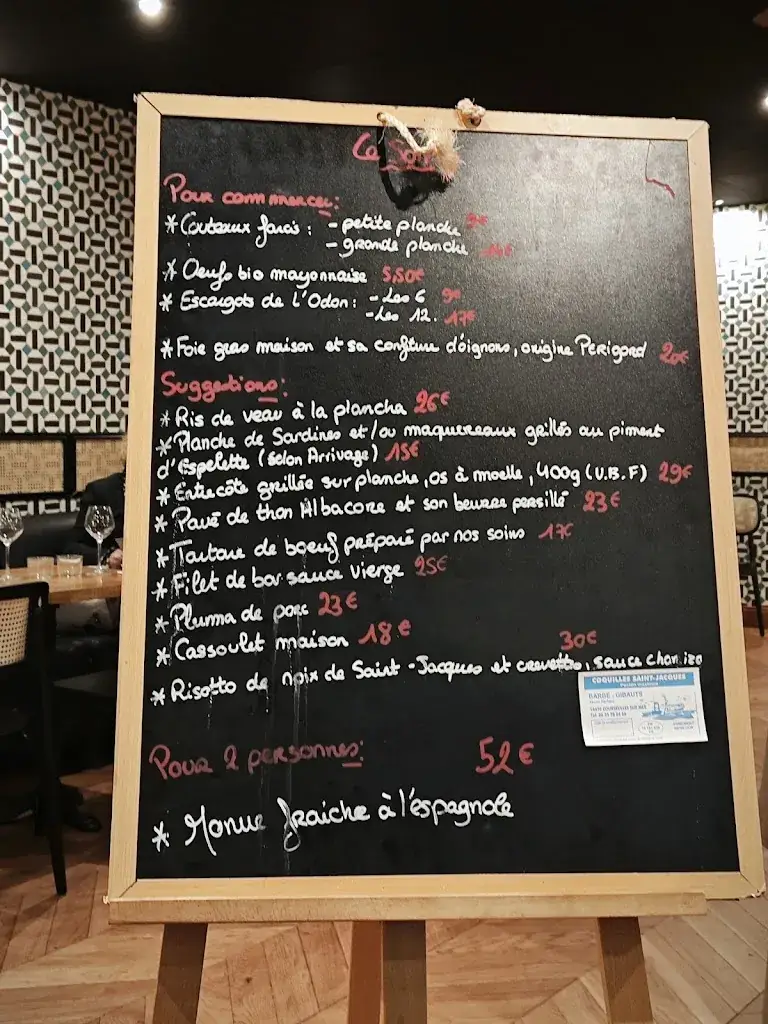 Ce Soir
Pour commencer:
* Couteaux farcis : - petite planche 9€
- grande planche 14€
* Oeufs bio mayonnaise 5,50€
* Escargots de L'Odon : - Les 6 9€
- Les 12. 17€
* Foie gras maison et sa confiture d'oignons, origine Périgord 20€
Suggestions:
* Ris de veau à la plancha 26€
* Planche de Sardines et/ou maquereaux grillés au piment
d'Espelette (selon Arrivage) 15€
* Entrecôte grillée sur planche, os à moelle, 400g (U.B.F) 29€
* Pavé de thon Albacore et son beurre persillé 23€
* Tartare de boeuf préparé par nos soins 17€
* Filet de bar sauce vierge 25€
* Pluma de porc 23€
* Cassoulet maison 18€
30€
* Risotto de noix de Saint-Jacques et crevettes, sauce chorizo
COQUILLES SAINT-JACQUES
BARBE-GIBAUTS
Pour 2 personnes: 52€
* Morue fraiche à l'espagnole